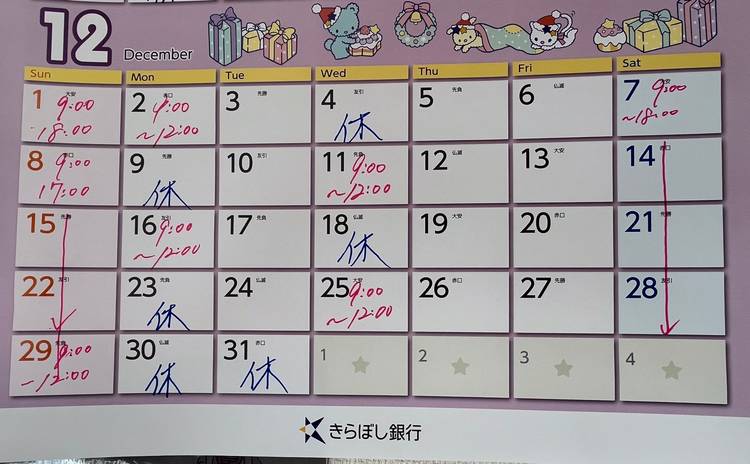 12 December
Sun Mon Tue Wed Thu Fri Sat
1 大安 2 赤口 3 先勝 4 友引 5 先負 6 仏滅 7 大安
9:00 9:00 休 9:00
-18:00 ~12:00 ~18:00
8 赤口 9 先勝 10 友引 11 先負 12 仏滅 13 大安 14 赤口
9:00 休 9:00
17:00 ~12:00
15 先勝 16 友引 17 先負 18 仏滅 19 大安 20 赤口 21 先勝
9:00 休
~12:00
22 友引 23 先負 24 仏滅 25 大安 26 赤口 27 先勝 28 友引
休 9:00
~12:00
29 先負 30 仏滅 31 赤口 1 2 3 4
9:00 休 休
-12:00
きらぼし銀行